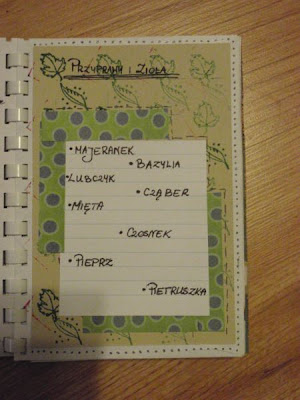 PRZYPRAWY I ZIOŁA
• MAJERANEK
• BAZYLIA
• LUBCZYK
• CZĄBER
• MIĘTA
• CZOSNEK
• PIEPRZ
• PIETRUSZKA